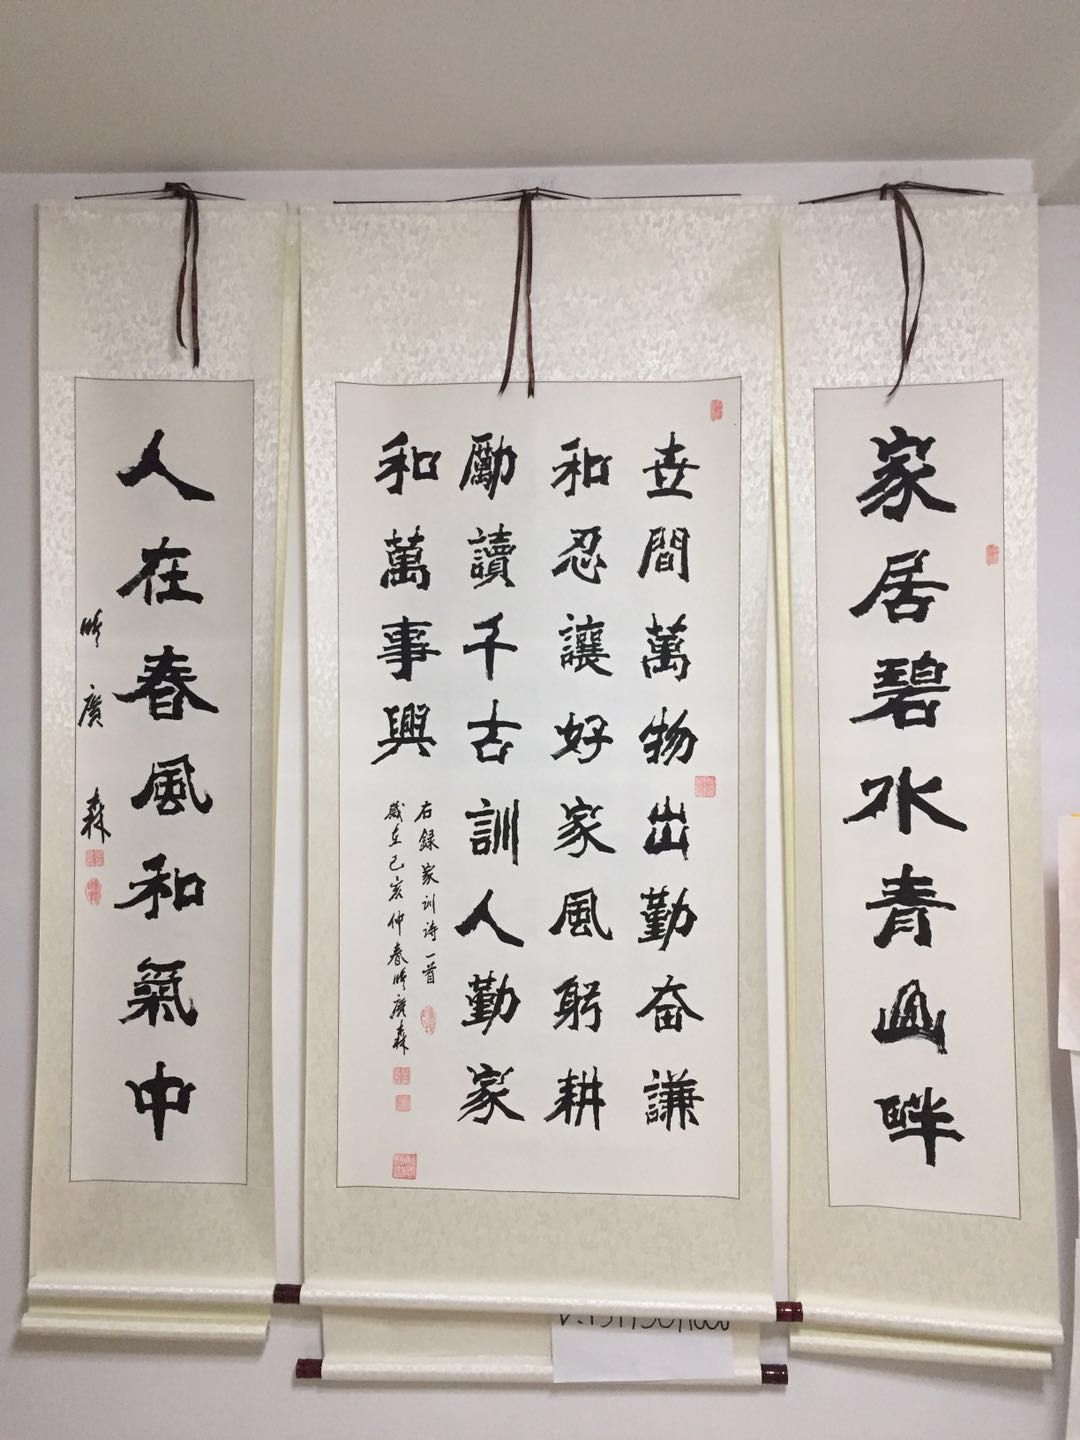 家居碧水青山畔
世間萬物出勤奮謙
和忍讓好家風躬耕
勵讀千古訓人勤家
和萬事興
右録家训诗一首
歲在己亥仲春時廣森
人在春風和氣中
時廣森